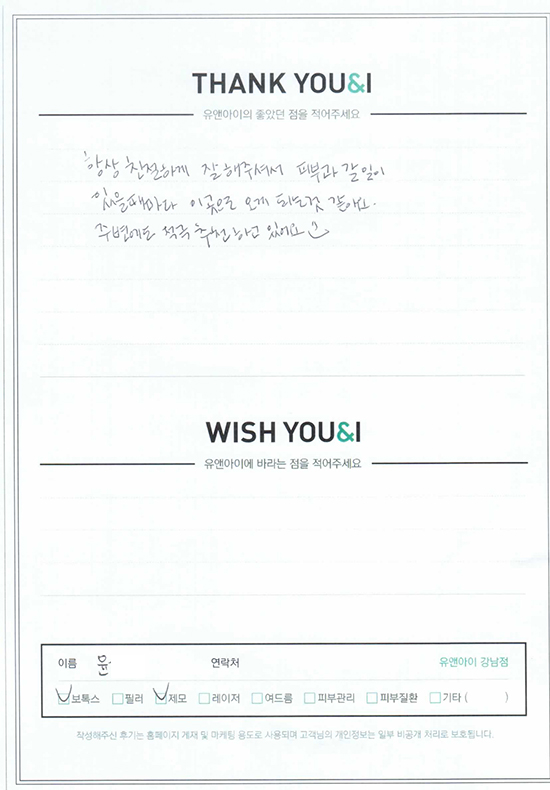 THANK YOU&I
유앤아이의 좋았던 점을 적어주세요
항상 친절하게 잘 해주셔서 피부과 갈일이
있을때마다 이곳으로 오게 되는것 같아요.
주변에도 적극 추천하고 있어요
WISH YOU&I
유앤아이에 바라는 점을 적어주세요
이름 윤· 연락처 유앤아이 강남점
보톡스 필러 제모 레이저 여드름 피부관리 피부질환 기타 ( )
작성해주신 후기는 홈페이지 게재 및 마케팅 용도로 사용되며 고객님의 개인정보는 일부 비공개 처리로 보호됩니다.